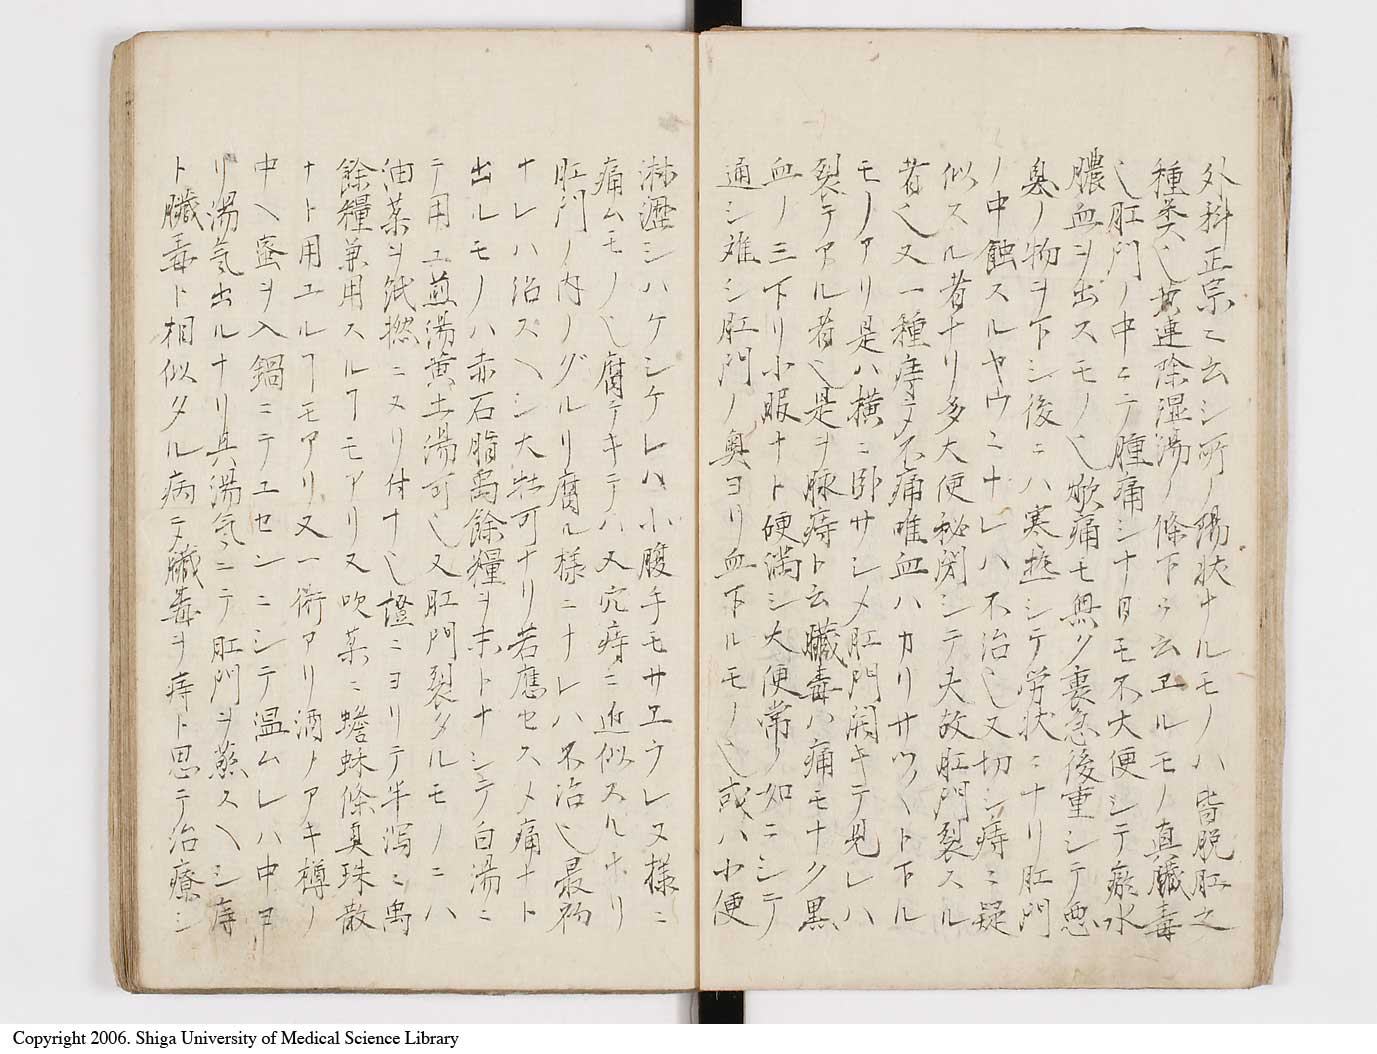 外科正宗ニ云シ所ノ陽状ナルモノハ皆脱肛之
種类也黄連除湿湯ノ條下ニ云ヱルモノ真臓毒
也肛門ノ中ニテ腫痛シ十日モ不大便シテ瘀水
膿血ヲ出スモノ也欬痛モ無ク裏急後重シテ悪
臭ノ物ヲ下シ後ニハ寒熱シテ労状ニナリ肛門
ノ中蝕スルヤウニナレハ不治也又切レ痔ニ疑
似スル者ナリ多大便秘閉シテ夫故肛門裂スル
者也又一種痔ニテ不痛唯血ハカリサウ〱ト下ル
モノアリ是ハ横ニ卧サシメ肛門開キテ見レハ
裂テアル者也是ヲ脉痔ト云臓毒ハ痛モナク黒
血ノミ下リ小腹ナト硬満シ大便常ノ如ニシテ
通シ難シ肛門ノ奥ヨリ血下ルモノ也或ハ小便
淋瀝シハケシケレハ小腹手モサヱラレヌ様ニ
痛ムモノ也腐テキテハ又穴痔ニ近似スルナリ
肛門ノ内ノグルリ腐ル様ニナレハ不治也最初
ナレハ治スヘシ大牡可ナリ若應セスメ痛ナト
出ルモノハ赤石脂禹餘糧ヲ末トナシテ白湯ニ
テ用ユ煎湯黄土湯可也又肛門裂タルモノニハ
油薬ヲ紙撚ニヌリ付ナ也證ニヨリテ半瀉ニ禹
餘糧兼用スルヿモアリ又吹薬ニ蟾蛛條真珠散
ナト用ユルヿモアリ又一術アリ酒ノアキ樽ノ
中ヘ蜜ヲ入鍋ニテユセンニシテ温ムレハ中ヨ
リ湯気出ルナリ其湯気ニテ肛門ヲ蒸スヘシ痔
ト臓毒ト相似タル病ニテ臓毒ヲ痔ト思テ治療シ
Copyright 2006. Shiga University of Medical Science Library